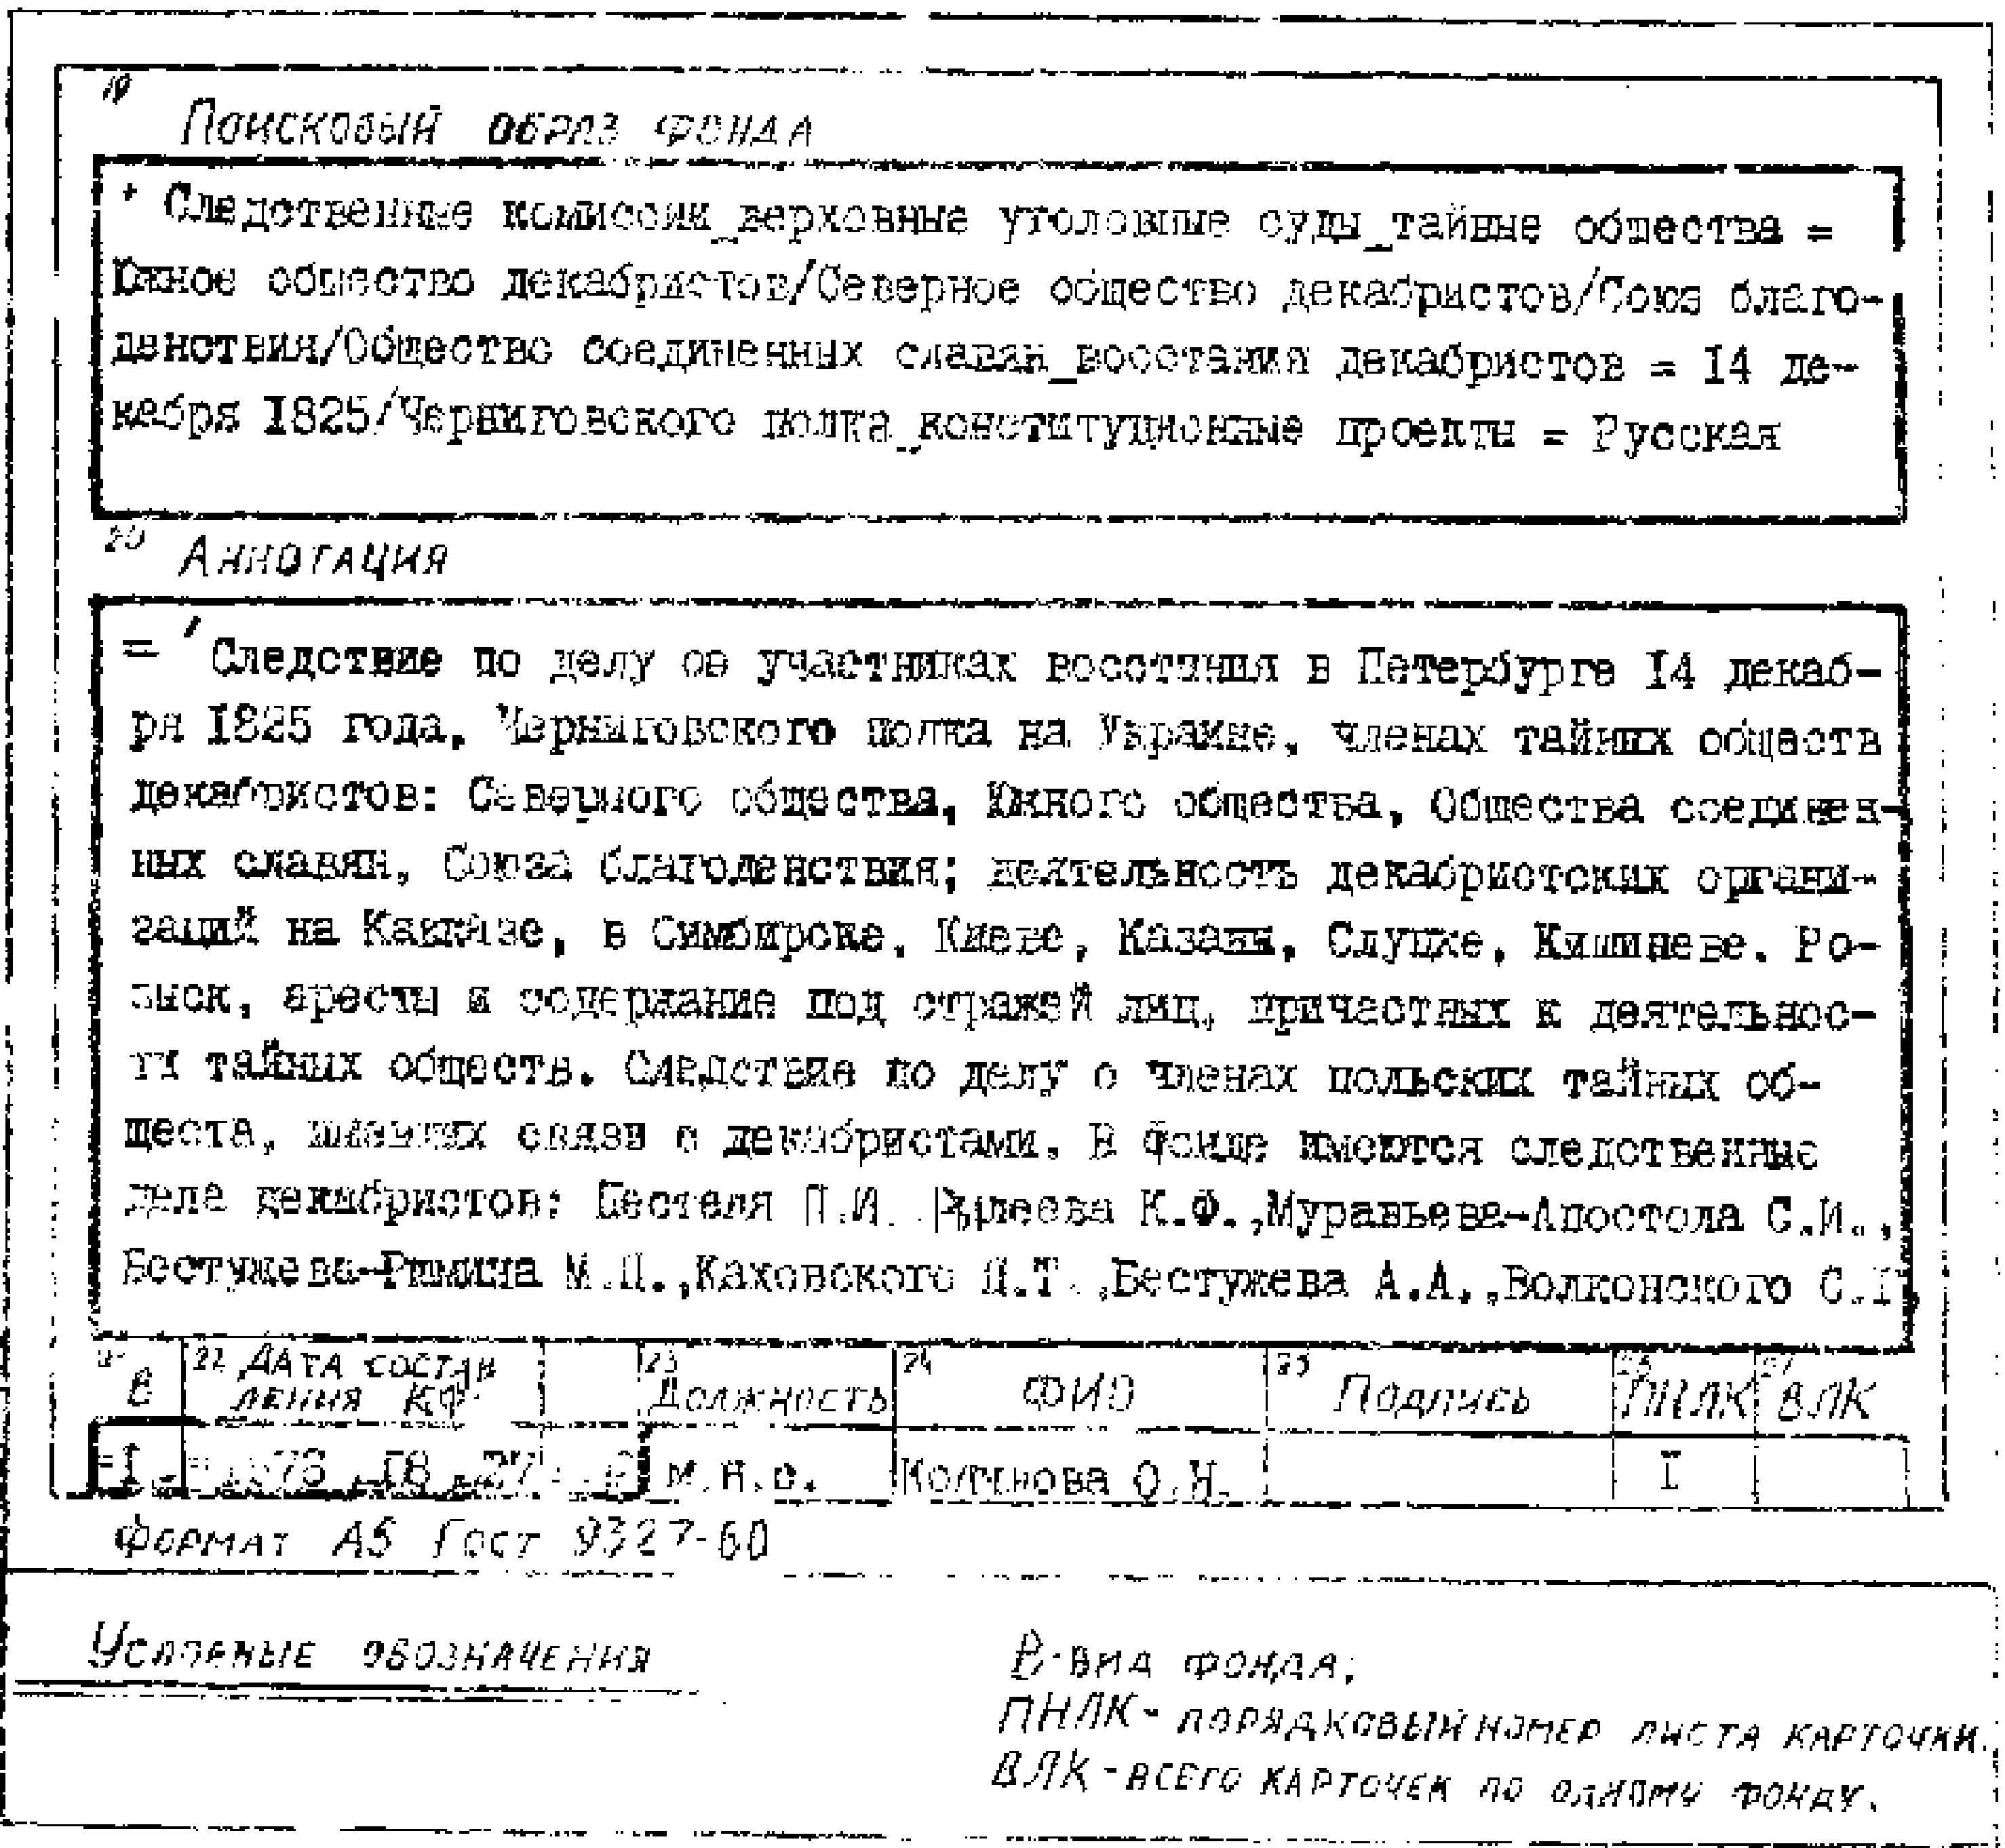 19
Поисковый образ фонда
+ Следственные комиссии_верховные уголовные суды_тайные общества =
Южное общество декабристов/Северное общество декабристов/Союз благо-
денствия/Общество соединенных славян_восстания декабристов = 14 де-
кабря 1825/Черниговского полка_конституционные проекты = Русская
20 Аннотация
= ' Следствие по делу об участниках восстания в Петербурге 14 декаб-
ря 1825 года, Черниговского полка на Украине, членах тайных обществ
декабристов: Северного общества, Южного общества, Общества соединен-
ных славян, Союза благоденствия; деятельность декабристских органи-
заций на Кавказе, в Симбирске, Киеве, Казани, Слуцке, Кишиневе. Ро-
зыск, аресты и содержание под стражей лиц, причастных к деятельнос-
ти тайных обществ. Следствие по делу о членах польских тайных об-
ществ, имевших связи с декабристами. В фонде имеются следственные
дела декабристов: Пестеля П.И. Рылеева К.Ф.,Муравьева-Апостола С.И.,
Бестужева-Рюмина М.П.,Каховского П.Г.,Бестужева А.А.,Волконского С.Г
В 22 Дата состав 23 24 ФИО 25 Подпись 26 ПНЛК 27 ВЛК
ления КФ Должность
=I 18 27 м.н.с. О.Н. I
Формат А5 Гост 9327-60
Условные обозначения
В-вид фонда;
ПНЛК- порядковый номер листа карточки.
ВЛК-всего карточек по одному фонду.